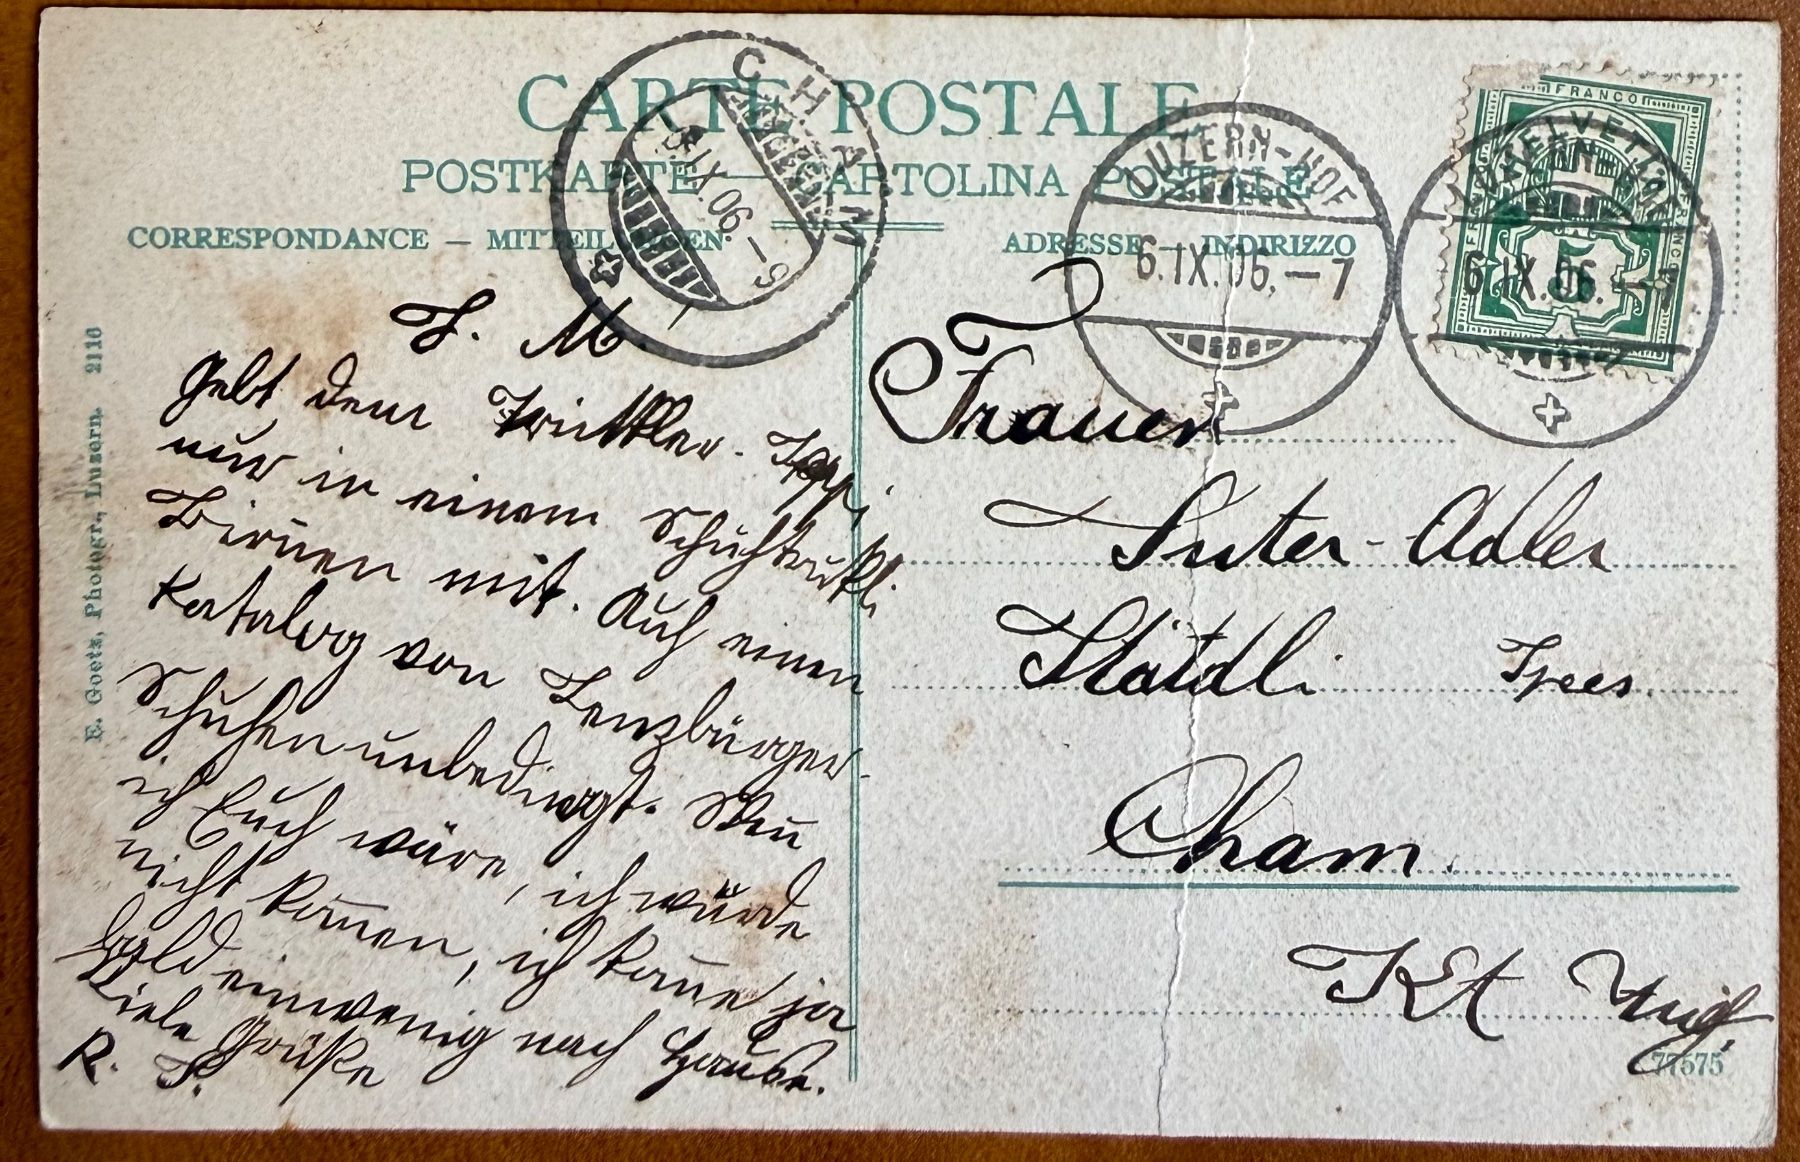 CARTE POSTALE
POSTKARTE — CARTOLINA POSTALE
CORRESPONDANCE — MITTEILUNGEN
ADRESSE — INDIRIZZO
CHAM
6.IX.06.–9
BRIEFTRÄGER
LUZERN-HOF
6.IX.06.–7
LUZERN-HOF
6.IX.06.–7
FRANCO
HELVETIA
FRANCO
FRANCO
5
E. Goetz, Photogr., Luzern. 2110
L. M.
Gebt dem
nur in einem Schuhtruckli
Birnen mit. Auch einen
Katalog von Lenzburger-
Schuhen unbedingt. Wen̄
ich Euch wäre, ich würde
nicht kom̄en, ich kom̄e ja
bald einwenig nach Hause.
Viele Grüße
R. S.
Frauen
Suter-Adler
Städtli
Cham.
Kt Zug.
77575